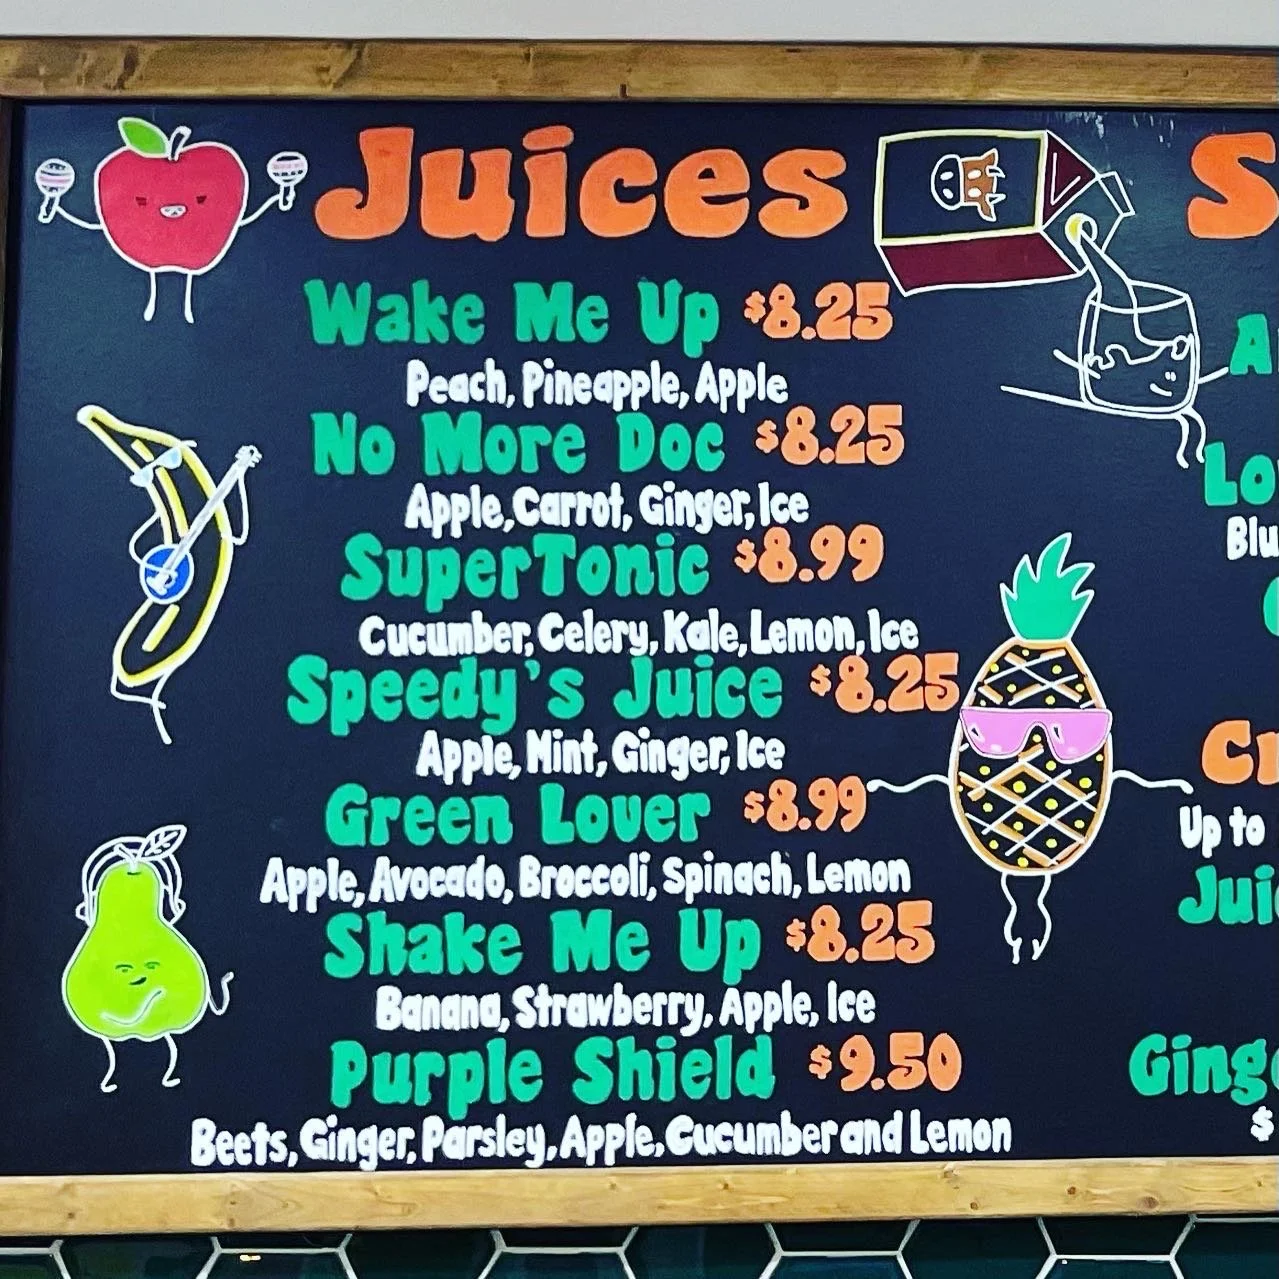 Juices
Wake Me Up $8.25
Peach, Pineapple, Apple
No More Doc $8.25
Apple, Carrot, Ginger, Ice
SuperTonic $8.99
Cucumber, Celery, Kale, Lemon, Ice
Speedy's Juice $8.25
Apple, Mint, Ginger, Ice
Green Lover $8.99
Apple, Avocado, Broccoli, Spinach, Lemon
Shake Me Up $8.25
Banana, Strawberry, Apple, Ice
Purple Shield $9.50
Beets, Ginger, Parsley, Apple, Cucumber and Lemon
S
A
Up to
$